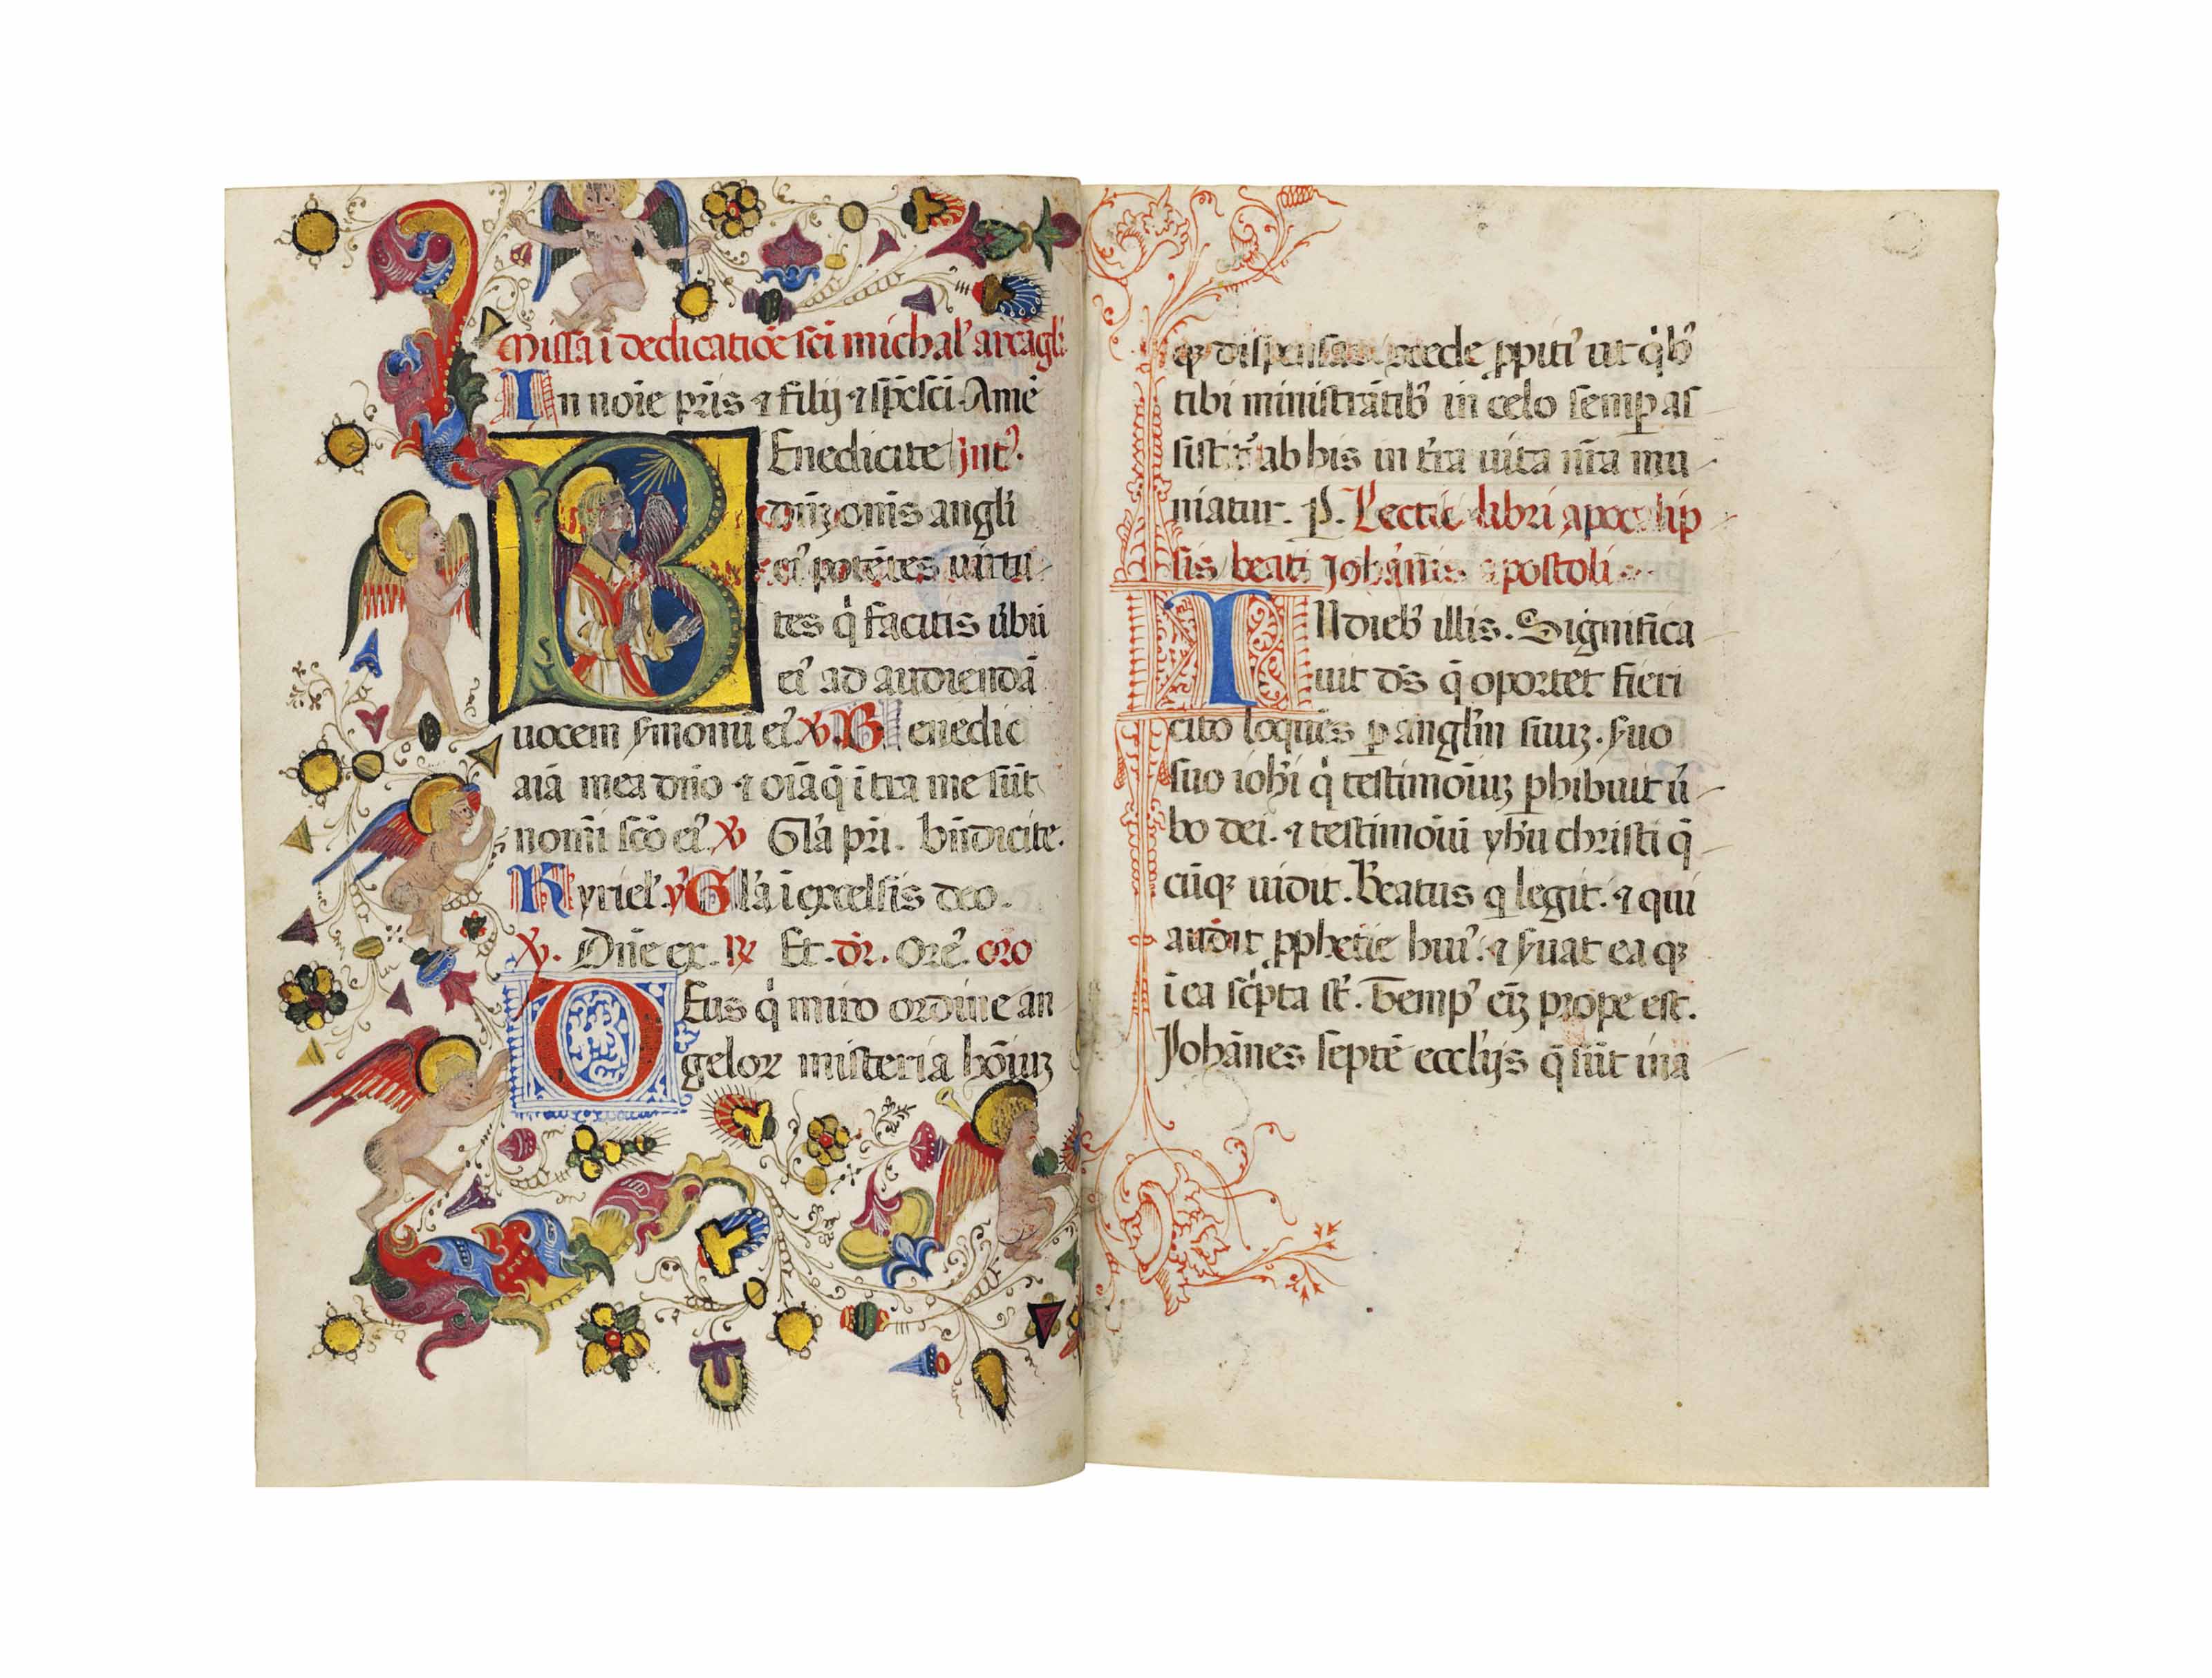 Missa i dedicatiōe sci michal' arcāgli
In noīe pr̄is ⁊ filij ⁊ sp̄s sci. Amē
BEnedicite Int'.
dn̄ꝫ om̄s angli
ei' potētes uirtu
tes q̇ facitis ūbū
ei' ad audiendā
uocem ẜmonū ei' ℣. Benedic
aīā mea dn̄o ⁊ oīa q̄ ītra me sūt
nomī scō ei' ℣ Gl'a pr̄i. bn̄dicite.
Kyriel'. ẏ Gl'a ī excelsis deo.
℣. Dn̄e ex. ℞ Et. or̄. Orē. oro
DEus q̇ miro ordine an
geloꝝ misteria hōīuꝫ
qꝫ dispensas ꝯcede ꝓpiti' ut q̇b'
tibi ministrātib' in celo semꝑ as
sistit' ab his in t'ra uita nr̄a mu
niatur. P. Lectio libri apocalip
sis beati Johānis apostoli.
INdieb' illis. Significa
uit ds̄ q̄ oportet fieri
cito loquēs ꝑ angl'm suuꝫ. ẜuo
suo ioh̄i q̇ testimōīuꝫ ꝑhibuit ū
bo dei. ⁊ testimōīū yh̄u christi q̄
cūqꝫ uidit. Beatus q̇ legit. ⁊ qui
audit ꝓphetie hui'. ⁊ ẜuat ea qꝫ
ī ea sc̓pta st̄. Temp' eīꝫ prope est.
Johānes septē eccl'ijs q̄ sūt in a